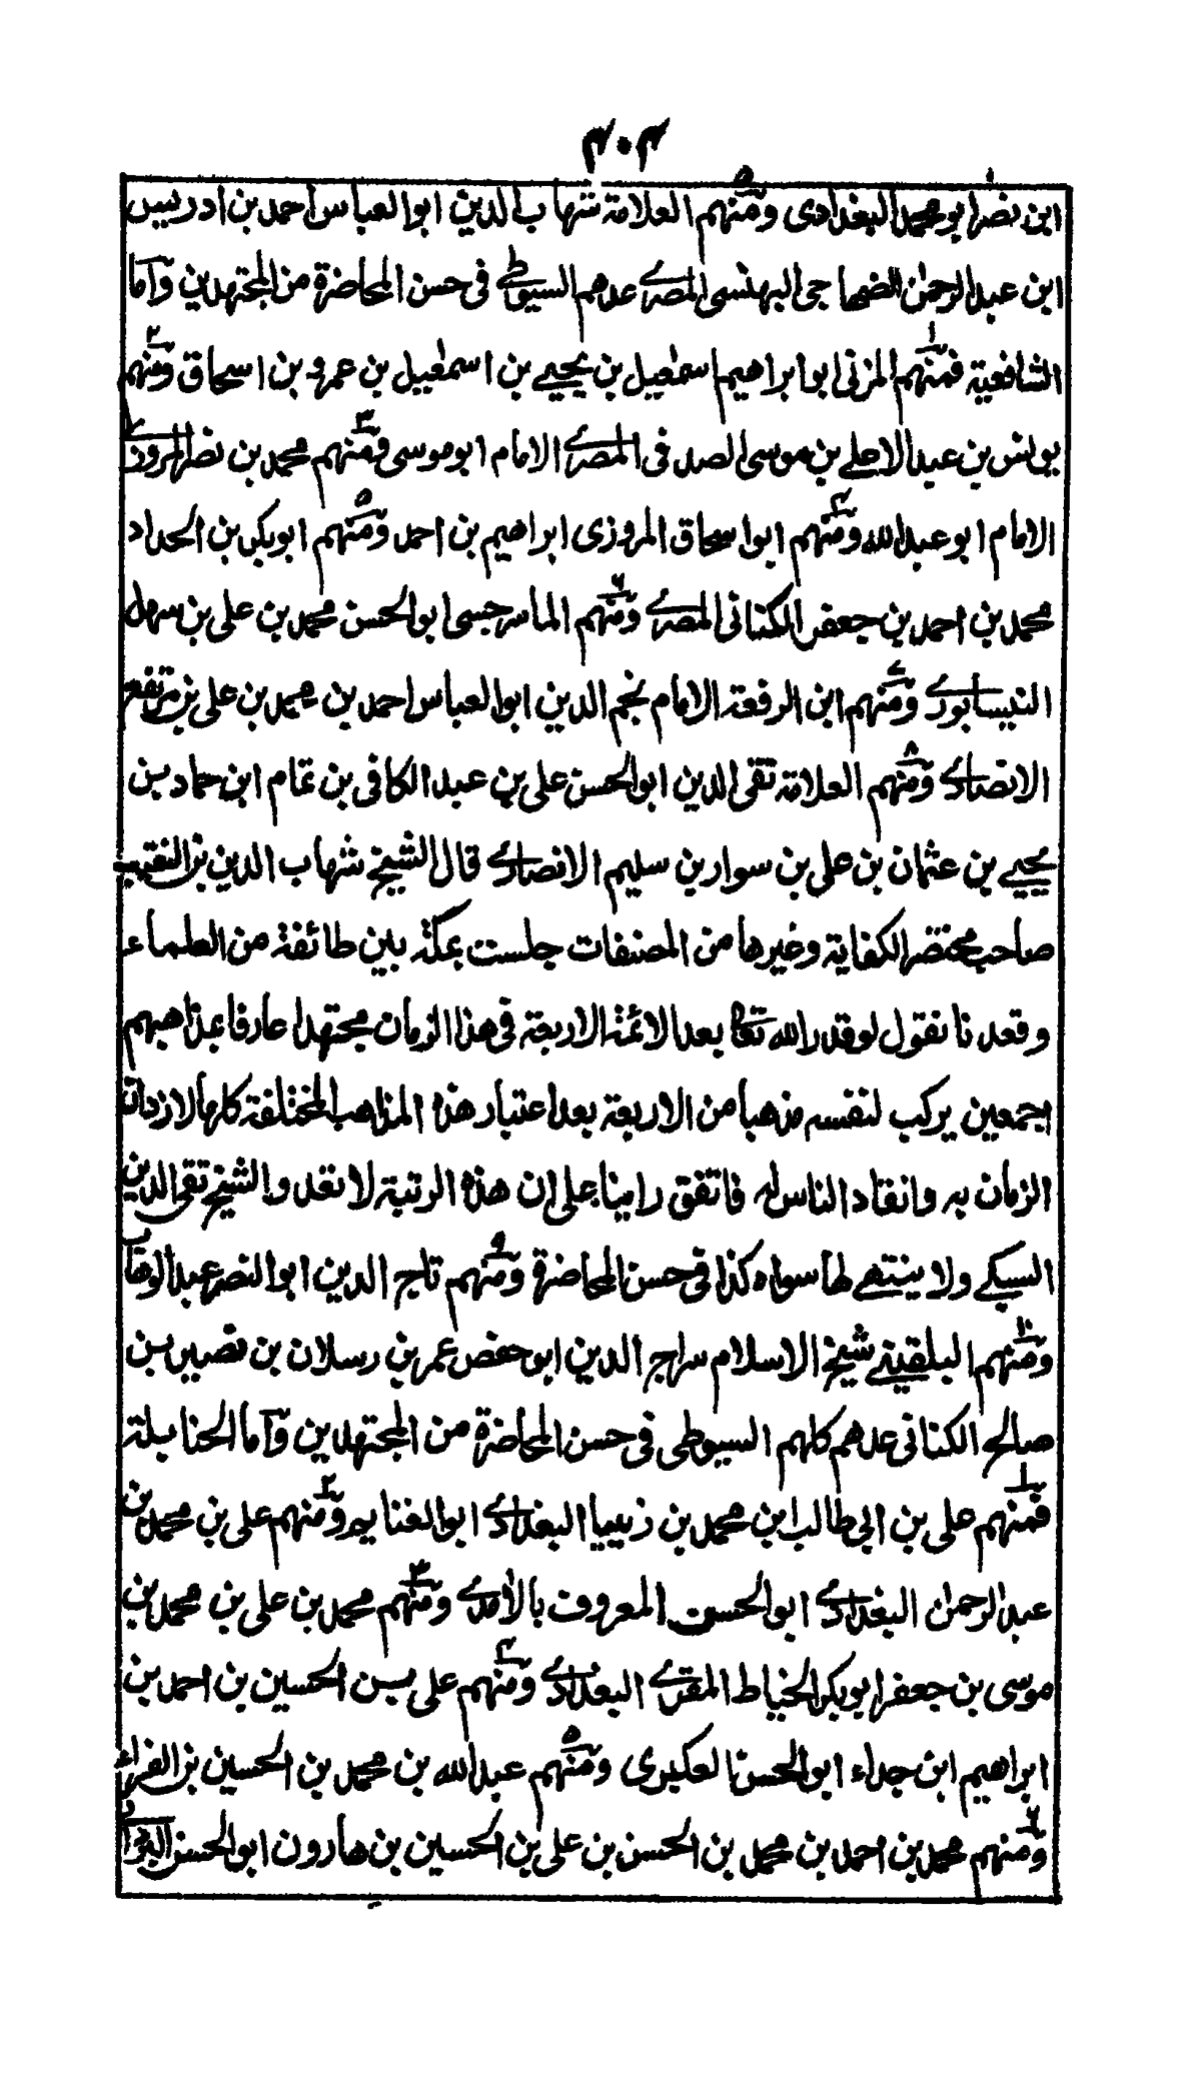 ٣٠٣
ابن نصر ابو محمد البغدادى ومنهم العلامة شهاب الدين ابوالعباس احمد بن ادريس
ابن عبد الرحمن الضهاجى البهنسى المصرى عدهم السيوطى فى حسن المحاضرة من المجتهدين واما
الشافعية فمنهم المزنى ابو ابراهيم اسمعيل بن يحيى بن اسمعيل بن عمرو بن اسحاق ومنهم
يونس بن عبد الاعلى بن موسى الصدفى المصرى الامام ابو موسى ومنهم محمد بن نصر المروزى
الامام ابو عبد الله ومنهم ابو اسحاق المروزى ابراهيم بن احمد ومنهم ابوبكر بن الحداد
محمد بن احمد بن جعفر الكنانى المصرى ومنهم الماسرجسى ابو الحسن محمد بن على بن سهل
النيسابورى ومنهم ابن الرفعة الامام نجم الدين ابو العباس احمد بن محمد بن على بن مرتفع
الانصارى ومنهم العلامة تقى الدين ابو الحسن على بن عبد الكافى بن تمام ابن حماد بن
يحيى بن عثمان بن على بن سوار بن سليم الانصارى قال الشيخ شهاب الدين بن النقيب
صاحب مختصر الكفاية وغيرها من المصنفات جلست بمكة بين طائفة من العلماء
وقعدنا نقول لو قدر الله تعالى بعد الائمة الاربعة فى هذا الزمان مجتهدا عارفا بمذاهبهم
اجمعين يركب لنفسه مذهبا من الاربعة بعد اعتبار هذه المذاهب المختلفة كلها لازدان
الزمان به وانقاد الناس له فاتفق راينا على ان هذه الرتبة لا تعدو الشيخ تقى الدين
السبكى ولا ينتهى لها سواه كذا فى حسن المحاضرة ومنهم تاج الدين ابو النصر عبد الوهاب
ومنهم البلقينى شيخ الاسلام سراج الدين ابو حفص عمر بن رسلان بن نصير بن
صالح الكنانى عدهم كلهم السيوطى فى حسن المحاضرة من المجتهدين واما الحنابلة
فمنهم على بن ابى طالب ابن محمد بن زبيبا البغدادى ابو الغنايم ومنهم على بن محمد بن
عبد الرحمن البغدادى ابو الحسن المعروف بالآمدى ومنهم محمد بن على بن محمد بن
موسى بن جعفر ابوبكر الخياط المقرى البغدادى ومنهم على بن الحسين بن احمد بن
ابراهيم ابن جداء ابو الحسن العكبرى ومنهم عبد الله بن محمد بن الحسين بن الفراء
ومنهم محمد بن احمد بن محمد بن الحسن بن على بن الحسين بن هارون ابو الحسن